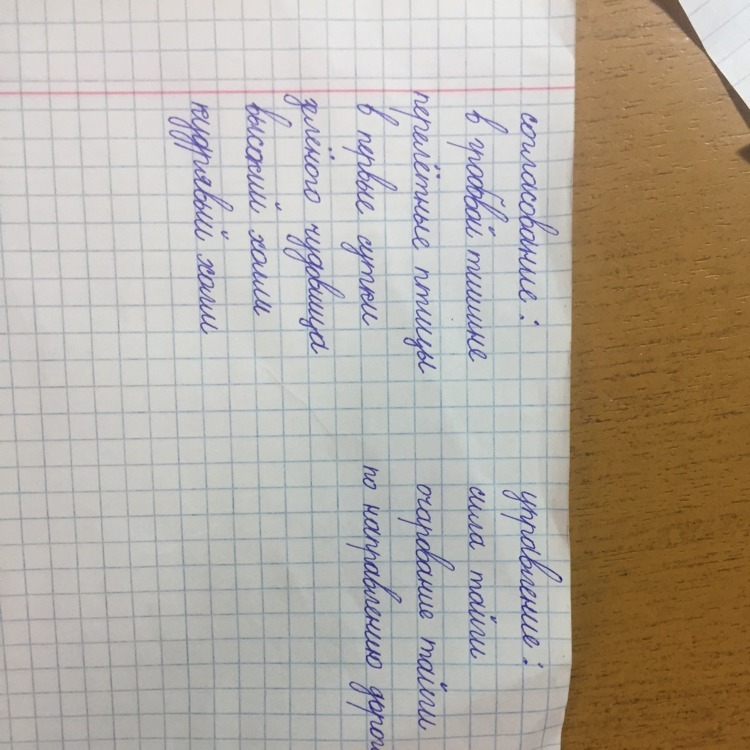 согласование:
в гробовой тишине
перелётные птицы
в первые сутки
зелёного чудовища
высокий холм
кудрявый холм
управление:
сила тайги
очарование тайги
по направлению